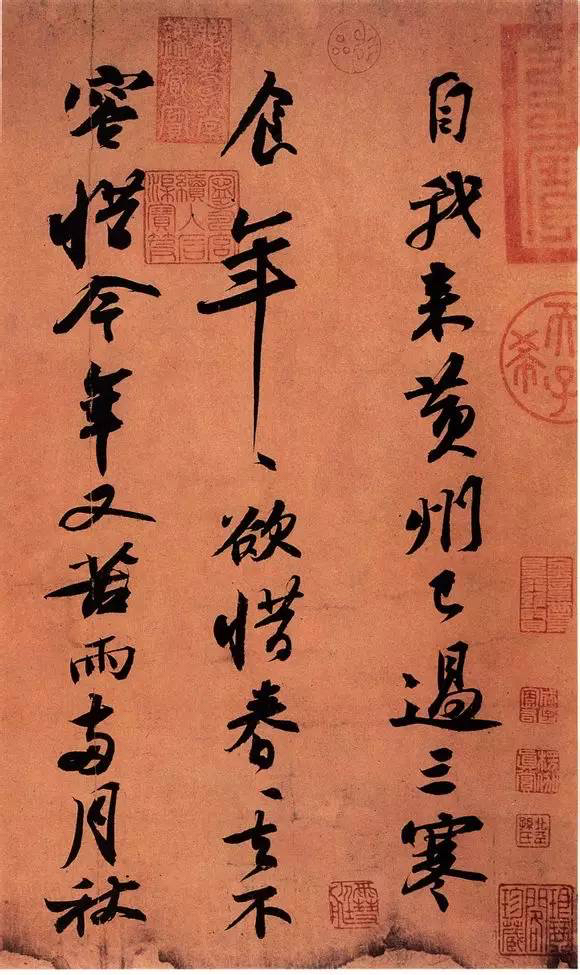 自我来黄州已過三寒
食年〻欲惜春〻去不
容惜今年又苦雨兩月秋
天子
希